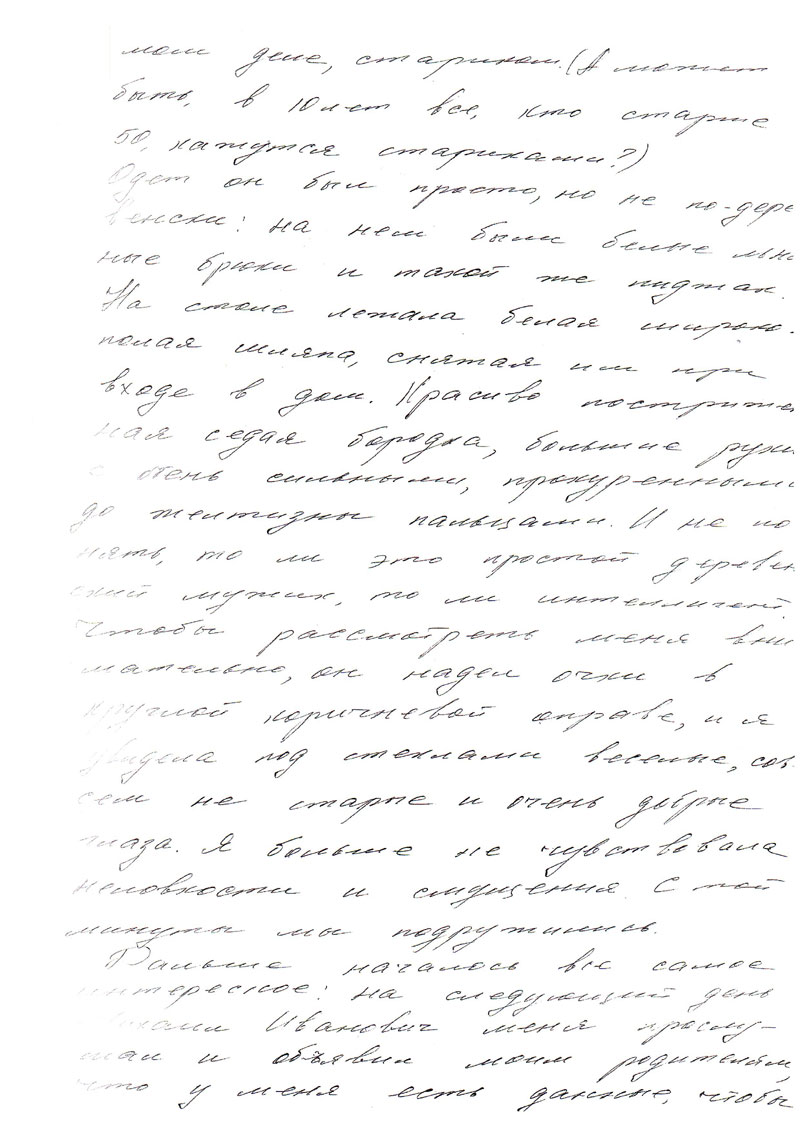 мом деле, стариком. (А может
быть, в 10 лет все, кто старше
50, кажутся стариками?)
Одет он был просто, но не по-дере
венски: на нем были белые льня
ные брюки и такой же пиджак.
На столе лежала белая широко-
полая шляпа, снятая им при
входе в дом. Красиво постриже
ная седая бородка, большие руки
с очень сильными, прокуренными
до желтизны пальцами. И не по
нять, то ли это простой деревен
ский мужик, то ли интеллигент.
Чтобы рассмотреть меня вни
мательно, он надел очки в
круглой коричневой оправе, и я
увидела под стеклами веселые, сов-
сем не старые и очень добрые
глаза. Я больше не чувствовала
неловкости и смущения. С той
минуты мы подружились.
Дальше началось все самое
интересное: на следующий день
Михаил Иванович меня прослу-
шал и объявил моим родителям,
что у меня есть данные, чтобы